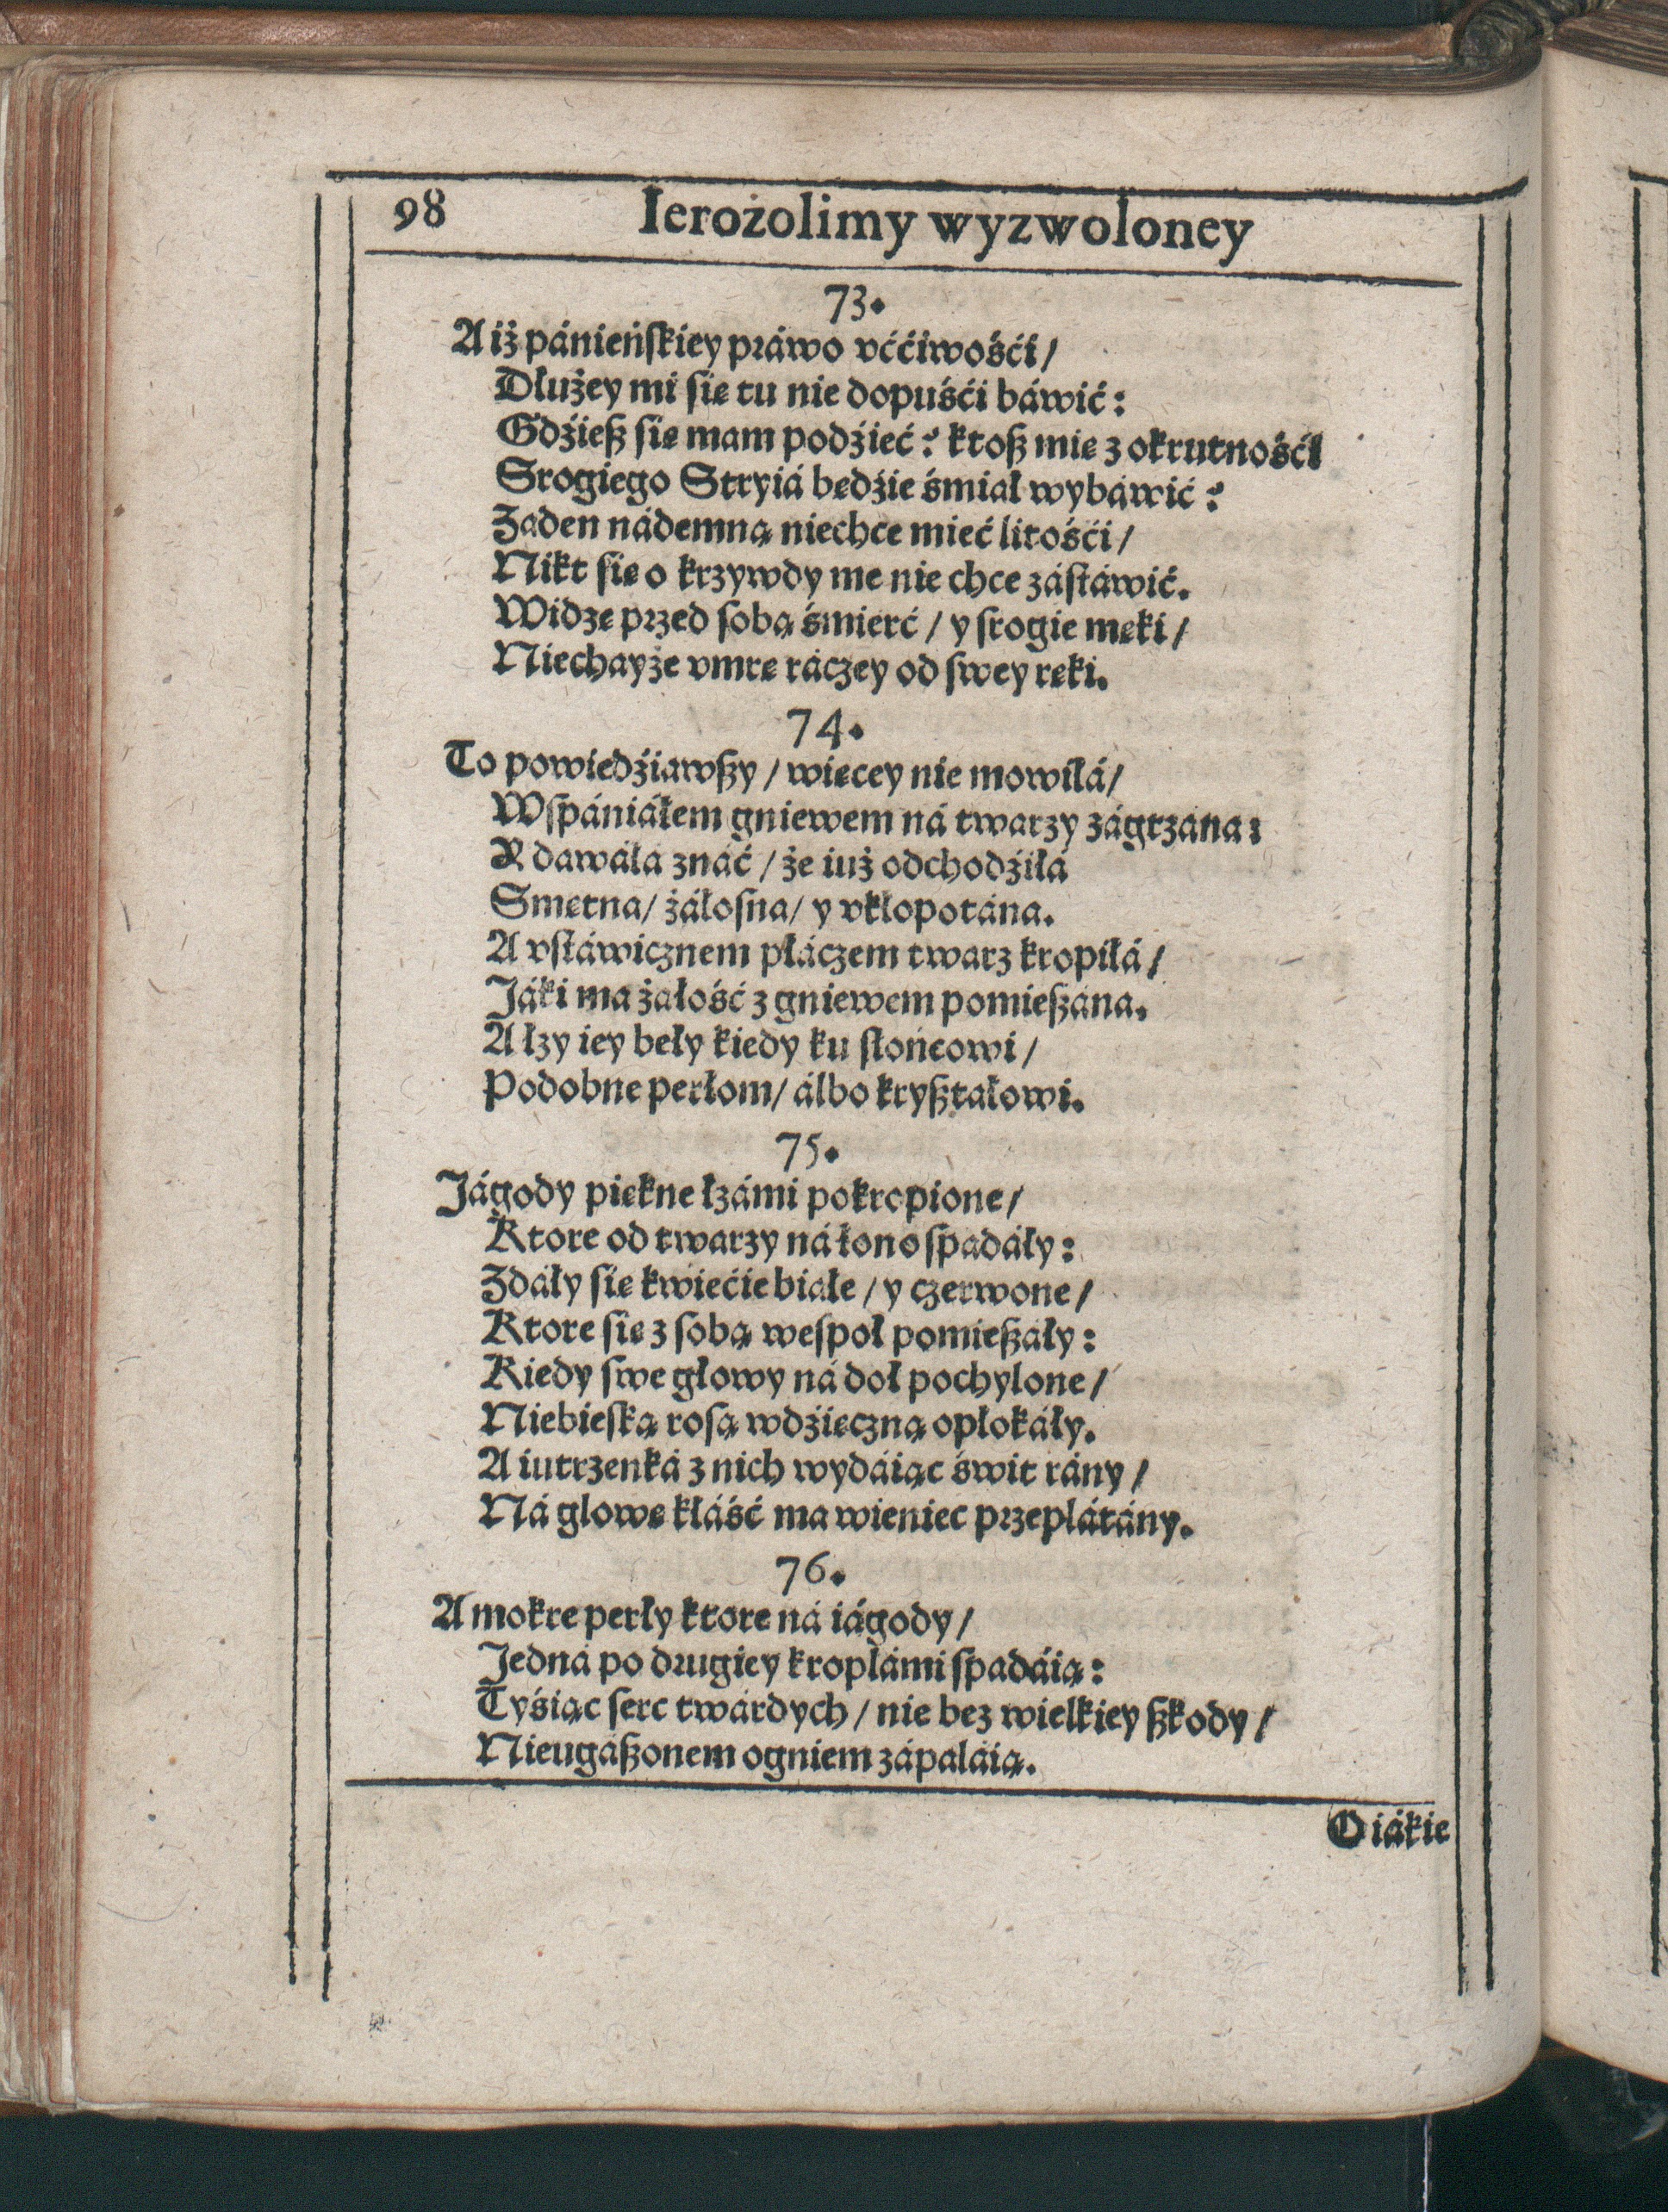 98
Ierozolimy wyzwoloney
73.
A iż pánieńſkiey práwo vććiwośći/
Dłużey mi ſię tu nie dopuśći báwić:
Gdźieß ſię mam podźieć? ktoß mię z okrutnośći
Srogiego Stryiá będźie śmiał wybáwić?
Zaden nádemną niechce mieć litośći/
Nikt ſię o krzywdy me nie chce záſtáwić.
Widzę przed ſobą śmierć/ y ſrogie męki/
Niechayże vmrę ráczey od ſwey ręki.
74.
To powiedźiawßy/ więcey nie mowiłá/
Wſpániáłem gniewem ná twarzy zágrzana:
Y dawáłá znáć/ że iuż odchodźiłá
Smętna/ żáłoſna/ y vkłopotána.
A vſtáwicznem płáczem twarz kropiłá/
Jáki ma żałość z gniewem pomießána.
A łzy iey beły kiedy ku słońcowi/
Podobne perłom/ álbo kryßtałowi.
75.
Jágody piękne łzámi pokropione/
Ktore od twarzy ná łono ſpadáły:
Zdáły ſię kwiećie białe/ y czerwone/
Ktore ſię z ſobą weſpoł pomießáły:
Kiedy ſwe głowy ná doł pochylone/
Niebieſką roſą wdźięczną opłokáły.
A iutrzenká z nich wydáiąc świt rány/
Ná glowę kłáść ma wieniec przeplátány.
76.
A mokre perły ktore ná iágody/
Jedná po drugiey kroplámi ſpadáią:
Tyśiąc ſerc twárdych/ nie bez wielkiey ßkody/
Nieugáßonem ogniem zápaláią.
O iákie